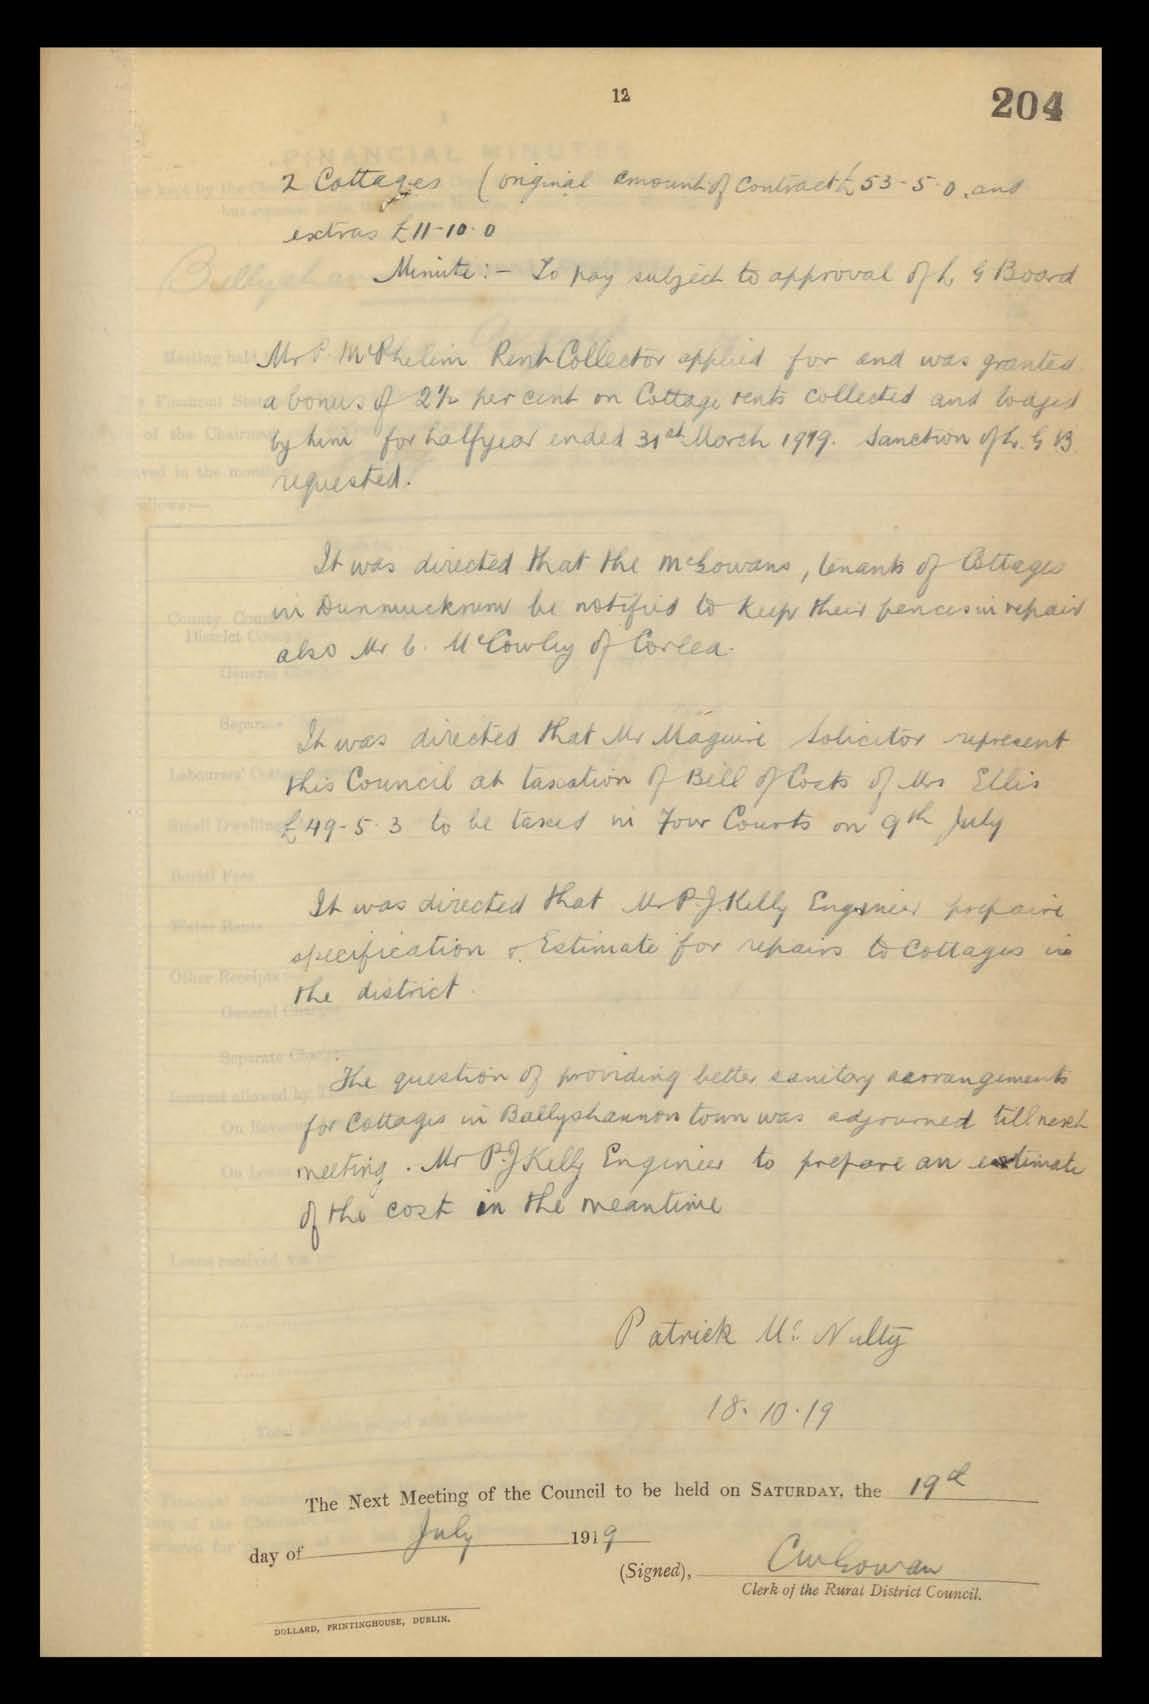 12
204
2 Cottages (original amount of contract £53-5-0, and
extras £11-10-0
Minute:- To pay subject to approval of L G Board
Mr P. McPhelim Rent Collector applied for and was granted
a bonus of 2½ per cent on Cottage rents collected and lodged
by him for halfyear ended 31st March 1919. Sanction of L. G B.
requested.
It was directed that the McGowans, tenants of Cottages
in Dunmuckrum be notified to keep their fences in repair
also Mr C. McCowley of Corlea.
It was directed that Mr Maguire Solicitor represent
this Council at taxation of Bill of Costs of Mrs Ellis
£49-5-3 to be taxed in Four Courts on 9th July
It was directed that Mr P.J. Kelly Engineer prepaire
specification & Estimate for repairs to Cottages in
the district.
The question of providing better sanitary aarrangements
for Cottages in Ballyshannon town was adjourned till next
meeting. Mr P.J Kelly Engineer to prepare an estimate
of the cost in the meantime
Patrick Mc Nulty
18.10.19
The Next Meeting of the Council to be held on SATURDAY, the 19th
day of July 1919
(Signed), CMcGowan
Clerk of the Rural District Council.
DOLLARD, PRINTINGHOUSE, DUBLIN.